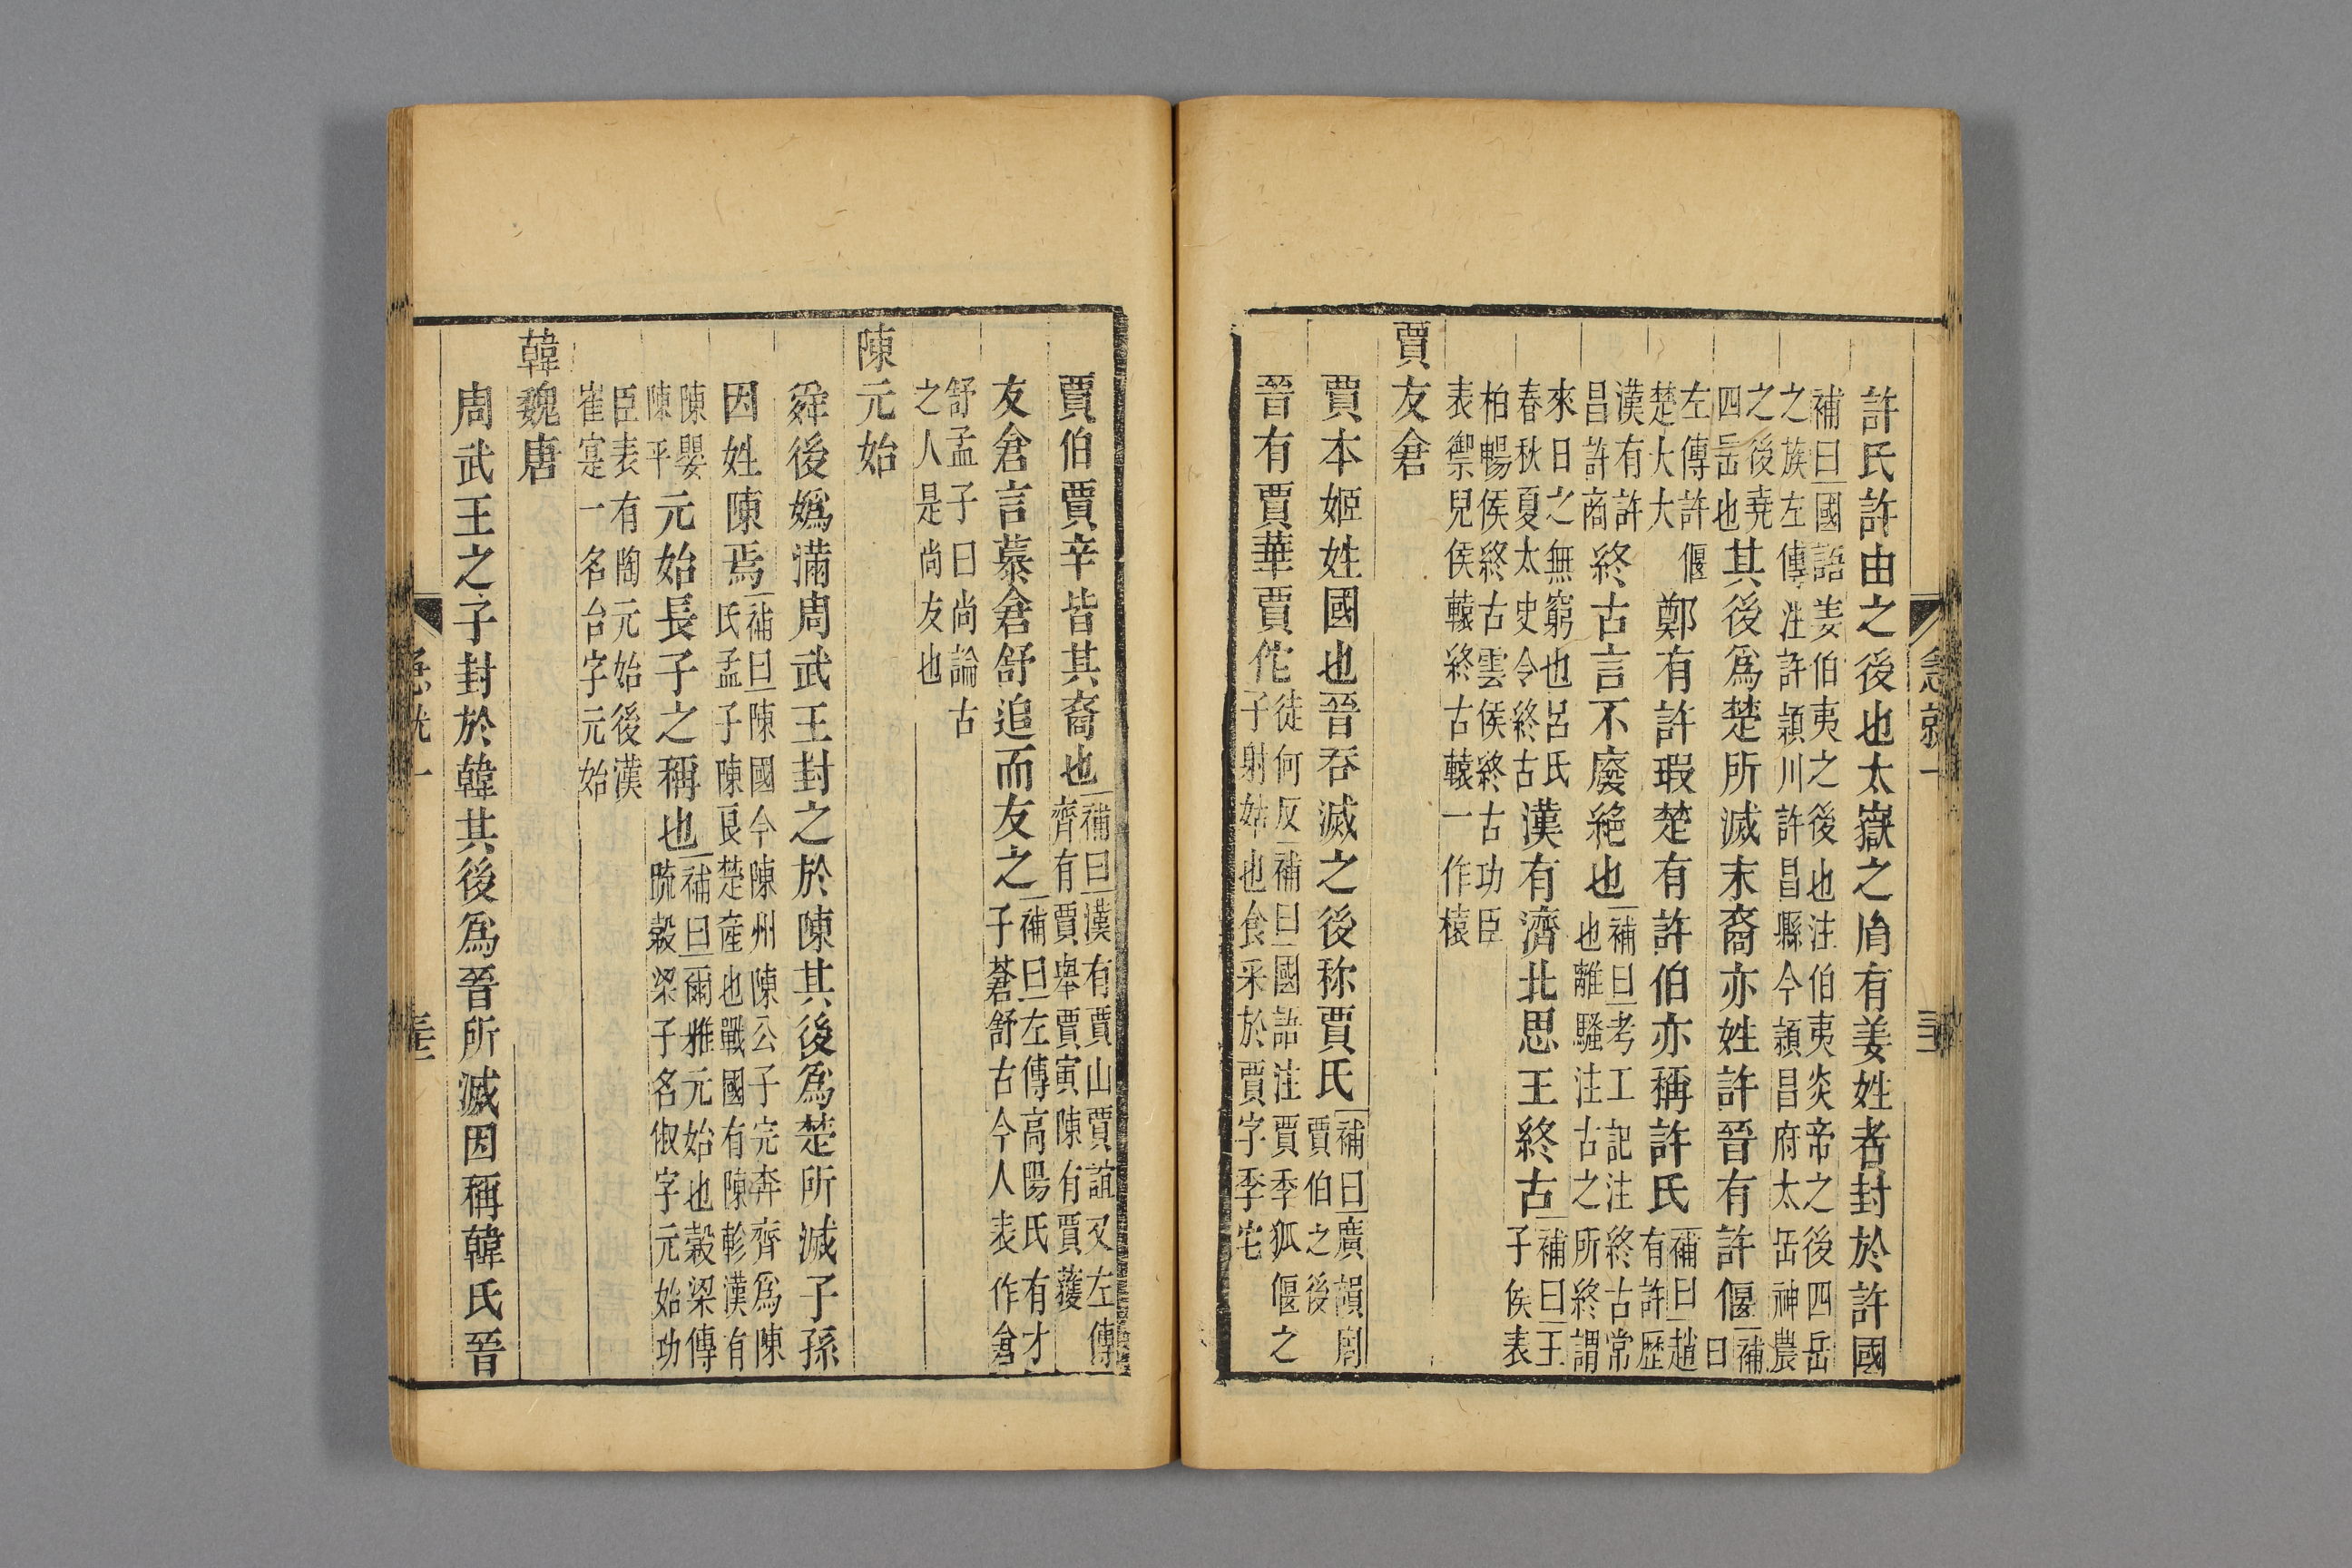 許氏許由之後也太嶽之𦙍有姜姓者封於許國
補曰國語姜伯夷之後也注伯夷炎帝之後四岳
之族左傳注許潁川許昌縣今潁昌府太岳神農
之後堯
四岳也
其後爲楚所滅末裔亦姓許晉有許偃
補
曰
左傳許偃
楚大大
鄭有許瑕楚有許伯亦稱許氏
補曰趙
有許歷
漢有許
昌許商
終古言不廢絕也
補曰考工記注終古常
也離騷注古之所終謂
來日之無窮也呂氏
春秋夏太史令終古
漢有濟北思王終古
補曰王
子侯表
柏暢侯終古雲侯終古功臣
表禦兒侯轅終古轅一作榬
賈友倉
賈本姬姓國也晉吞滅之後称賈氏
補曰廣韻周
賈伯之後
晉有賈華賈佗
徒何反補曰國語注賈季狐偃之
子射姑也食采於賈字季佗
急就一
賈伯賈辛皆其裔也
補曰漢有賈山賈誼又左傳
齊有賈舉賈寅陳有賈獲
友倉言慕倉舒追而友之
補曰左傳高陽氏有才
子蒼舒古今人表作倉
舒孟子曰尚論古
之人是尚友也
陳元始
舜後嬀滿周武王封之於陳其後爲楚所滅子孫
因姓陳焉
補曰陳國今陳州陳公子完奔齊爲陳
氏孟子陳良楚產也戰國有陳軫漢有
陳嬰
陳平
元始長子之稱也
補曰爾雅元始也穀梁傳
疏穀梁子名俶字元始功
臣表有陶元始後漢
崔寔一名台字元始
韓魏唐
周武王之子封於韓其後爲晉所滅因稱韓氏晉